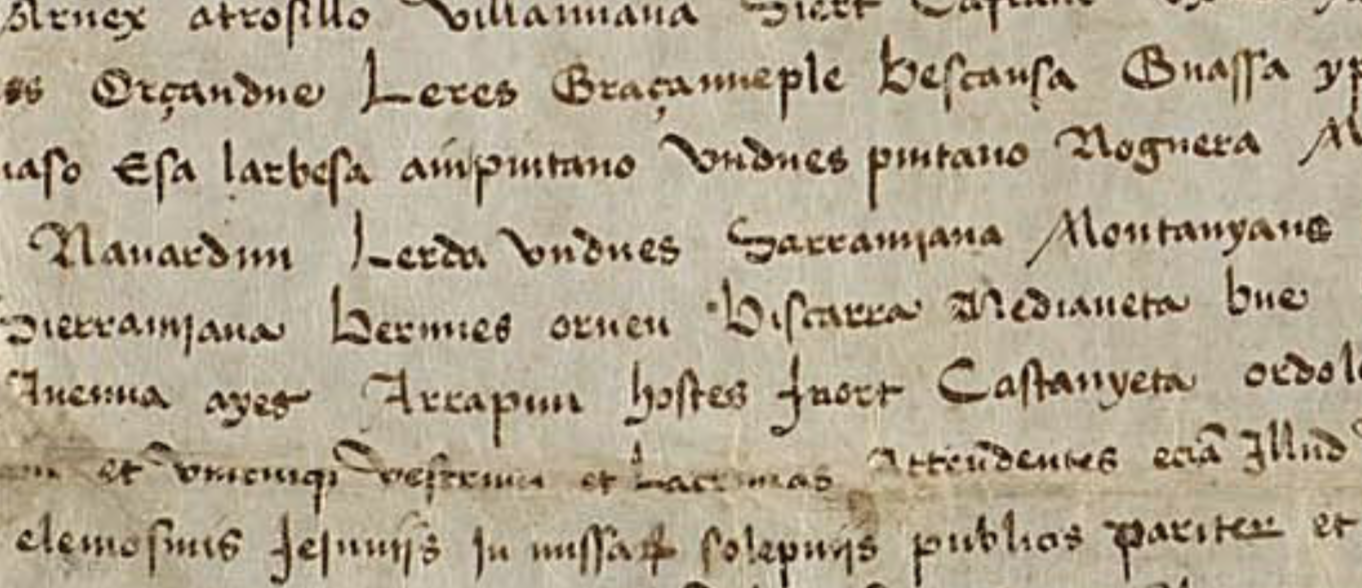 Arnex atrosillo villamuana Siert
es Orçandue Leres Graçanneple bescansa Guassa yp
uaso Esa larbesa ampintano vndues pintano Noguera
Nauardun Lerda vndues Sarramiana Montanyane
Pierramiana bernues orneu biscarra Medianeta bue
Auenna ayes Arrapun hostes Inort Castanyeta ordol
et vnicuiqȝ vestrum et Lacrimas Attendentes eciā Illud
elemosinis Jejunijs In missaꝝ solepnijs publicis pariter et